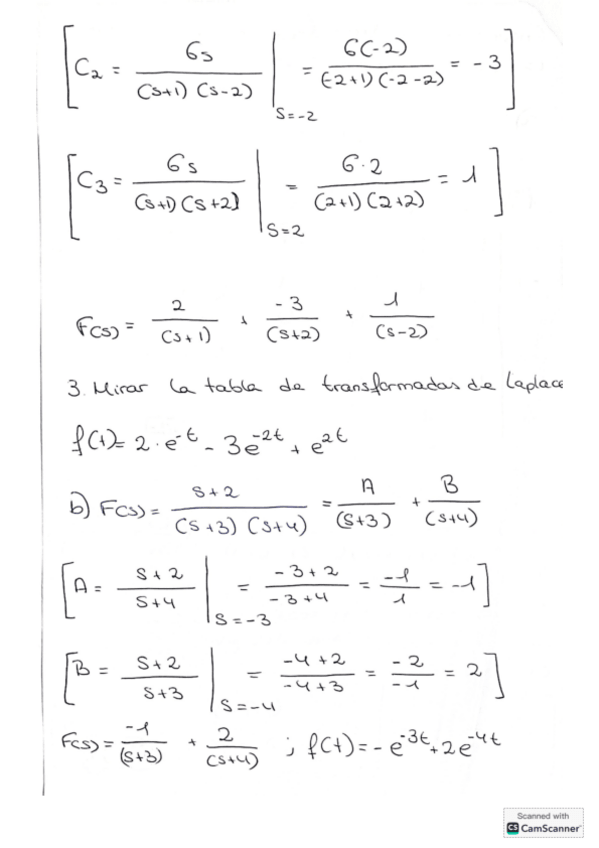 [C₂ = 6s / (s+1) (s-2) | s=-2 = 6(-2) / (-2+1) (-2-2) = -3]
[C₃ = 6s / (s+1) (s+2) | s=2 = 6·2 / (2+1) (2+2) = 1]
F(s) = 2 / (s+1) + -3 / (s+2) + 1 / (s-2)
3. Mirar la tabla de transformadas de Laplace
f(t) = 2·e^-t - 3e^-2t + e^2t
b) F(s) = s+2 / (s+3) (s+4) = A / (s+3) + B / (s+4)
[A = s+2 / s+4 | s=-3 = -3+2 / -3+4 = -1 / 1 = -1]
[B = s+2 / s+3 | s=-4 = -4+2 / -4+3 = -2 / -1 = 2]
F(s) = -1 / (s+3) + 2 / (s+4) ; f(t) = -e^-3t + 2e^-4t
Scanned with
CS CamScanner